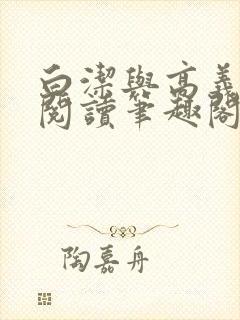 白潔與高義
閱讀筆趣閣
陶嘉舟